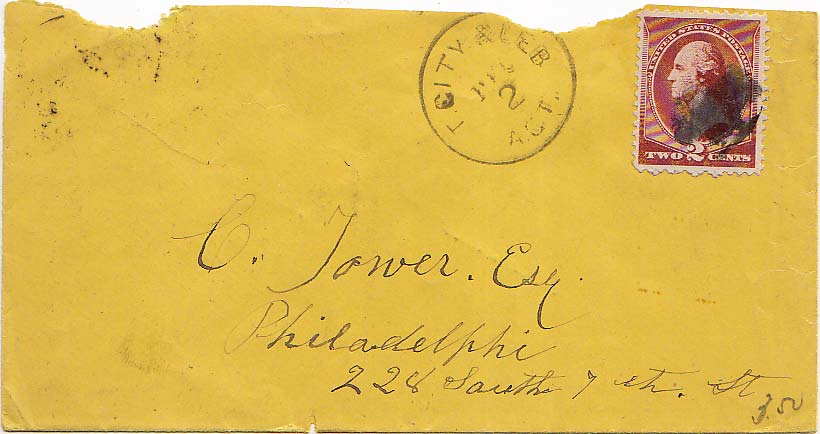 T. CITY & LEB. AGT.
FEB
2
UNITED STATES POSTAGE
TWO 2 CENTS
C. Tower. Esq.
Philadelphi
228 South 7 th. St
3.50